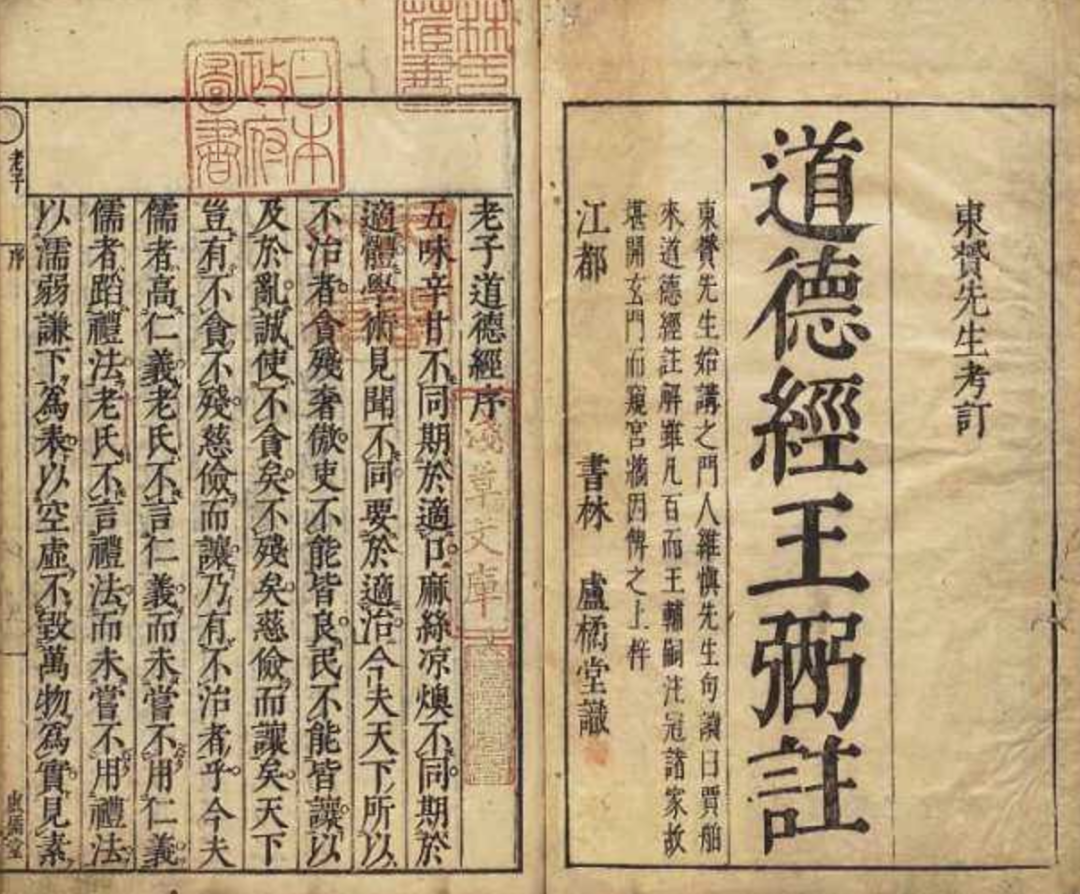 東贊先生考訂
道德經王弼註
東贊先生始講之門人維慎先生句讀曰賈舶
來道德經註解雖凡百而王輔嗣注冠諸家故
堪開玄門而窺宮牆因俾之上梓
江都 書林 盧橘堂識
老子道德經序
五味辛甘不同期於適口麻絲凉燠不同期於
適體學術見聞不同要於適治今夫天下所以
不治者貪殘奢傲吏不能皆良民不能皆讓以
及於亂誠使不貪矣不殘矣慈儉而讓矣天下
豈有不貪不殘慈儉而讓乃有不治者乎今夫
儒者高仁義老氏不言仁義而未嘗不用仁義
儒者蹈禮法老氏不言禮法而未嘗不用禮法
以濡弱謙下爲表以空虛不毀萬物爲實見素
老子
序
日本
政府
圖書
淺草文庫